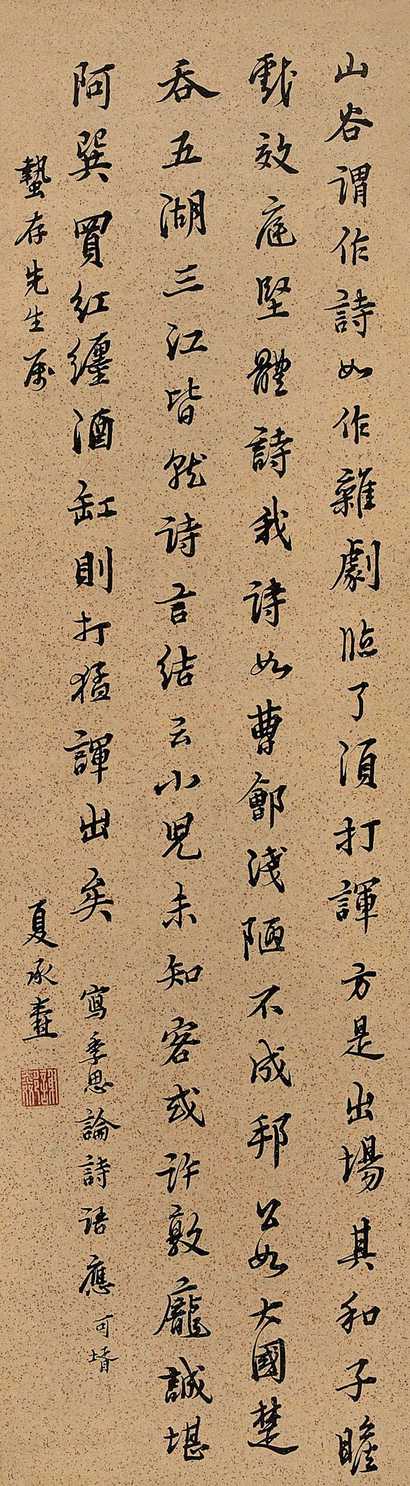 山谷謂作詩如作雜劇臨了須打諢方是出場其和子瞻
戲效庭堅體詩我詩如曹鄶淺陋不成邦公如大國楚
吞五湖三江皆就詩言結云小兒未知客或許敦龐誠堪
阿巽買紅纏酒缸則打猛諢出矣 寫季思論詩語應 可壻
蟄存先生属
夏承燾